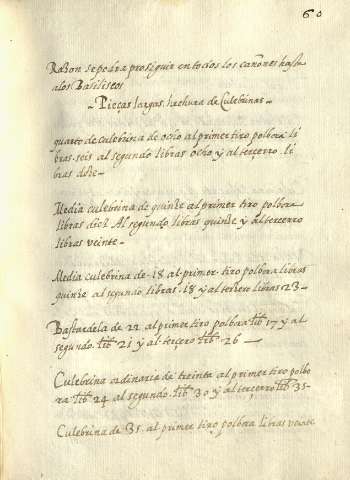 60
Razon se podra proseguir en todos los cañones hasta
alos Basiliscos
- Pieças largas, hechura de Culebrinas -
quarto de culebrina de ocho al primer tiro polbora li
bras. seis al segundo libras ocho y al tercerro. li
bras diez -
Media culebrina de quinze al primer tiro polbora
libras diez Al segundo libras quinze y al tercerro
libras veinte -
Media culebrina de .18 al primer tiro polbora libras
quinze al segundo libras .18 y al tercero libras 23 -
Bastardela de 22 al primer tiro polbora lib 17 y al
segundo. lib 21 y al tercero lib 26 -
Culebrina ordinaria de treinta al primer tiro polbo
ra lib 24 al segundo. lib 30 y al tercerro lib 35 -
Culebrina de 35. al primer tiro polbora libras veinte